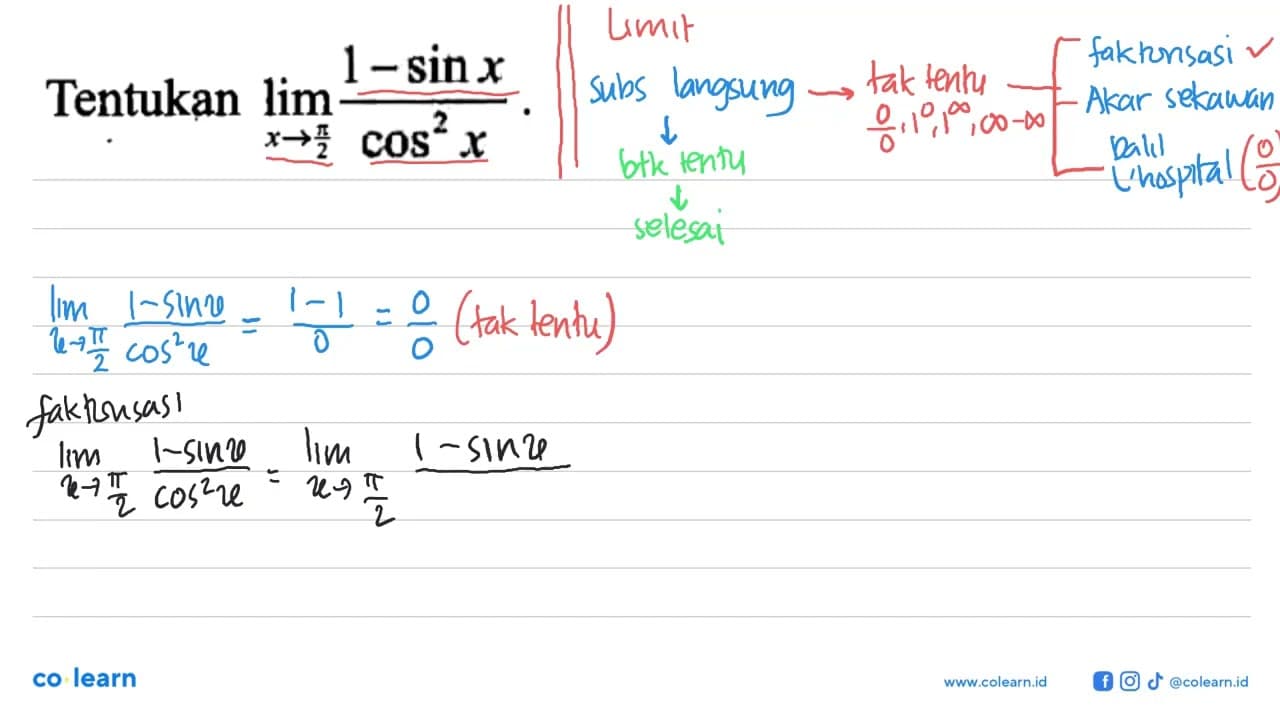 Tentukan lim x→π/2 1 – sin x / cos² x .
Limit
subs langsung → tak tentu
0/0, 1⁰, 1^∞, ∞-∞
faktorisasi ✓
Akar sekawan
Dalil
L'hospital (0/0)
↓
btk tentu
↓
selesai
lim x→π/2 1-sin x / cos² x = 1-1 / 0 = 0/0 (tak tentu)
faktorisasi
lim x→π/2 1-sin x / cos² x = lim x→π/2 1-sin x
co learn
www.colearn.id
@colearn.id